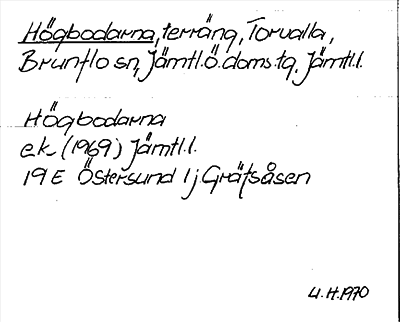 Högbodarna, terräng, Torvalla,
Brunflo sn, Jämtl.Ö.doms.tg. Jämtl.l.
Högbodarna
e.k. (1969) Jämtl.l.
19E Östersund 1j Gräfsåsen
U.H.1970